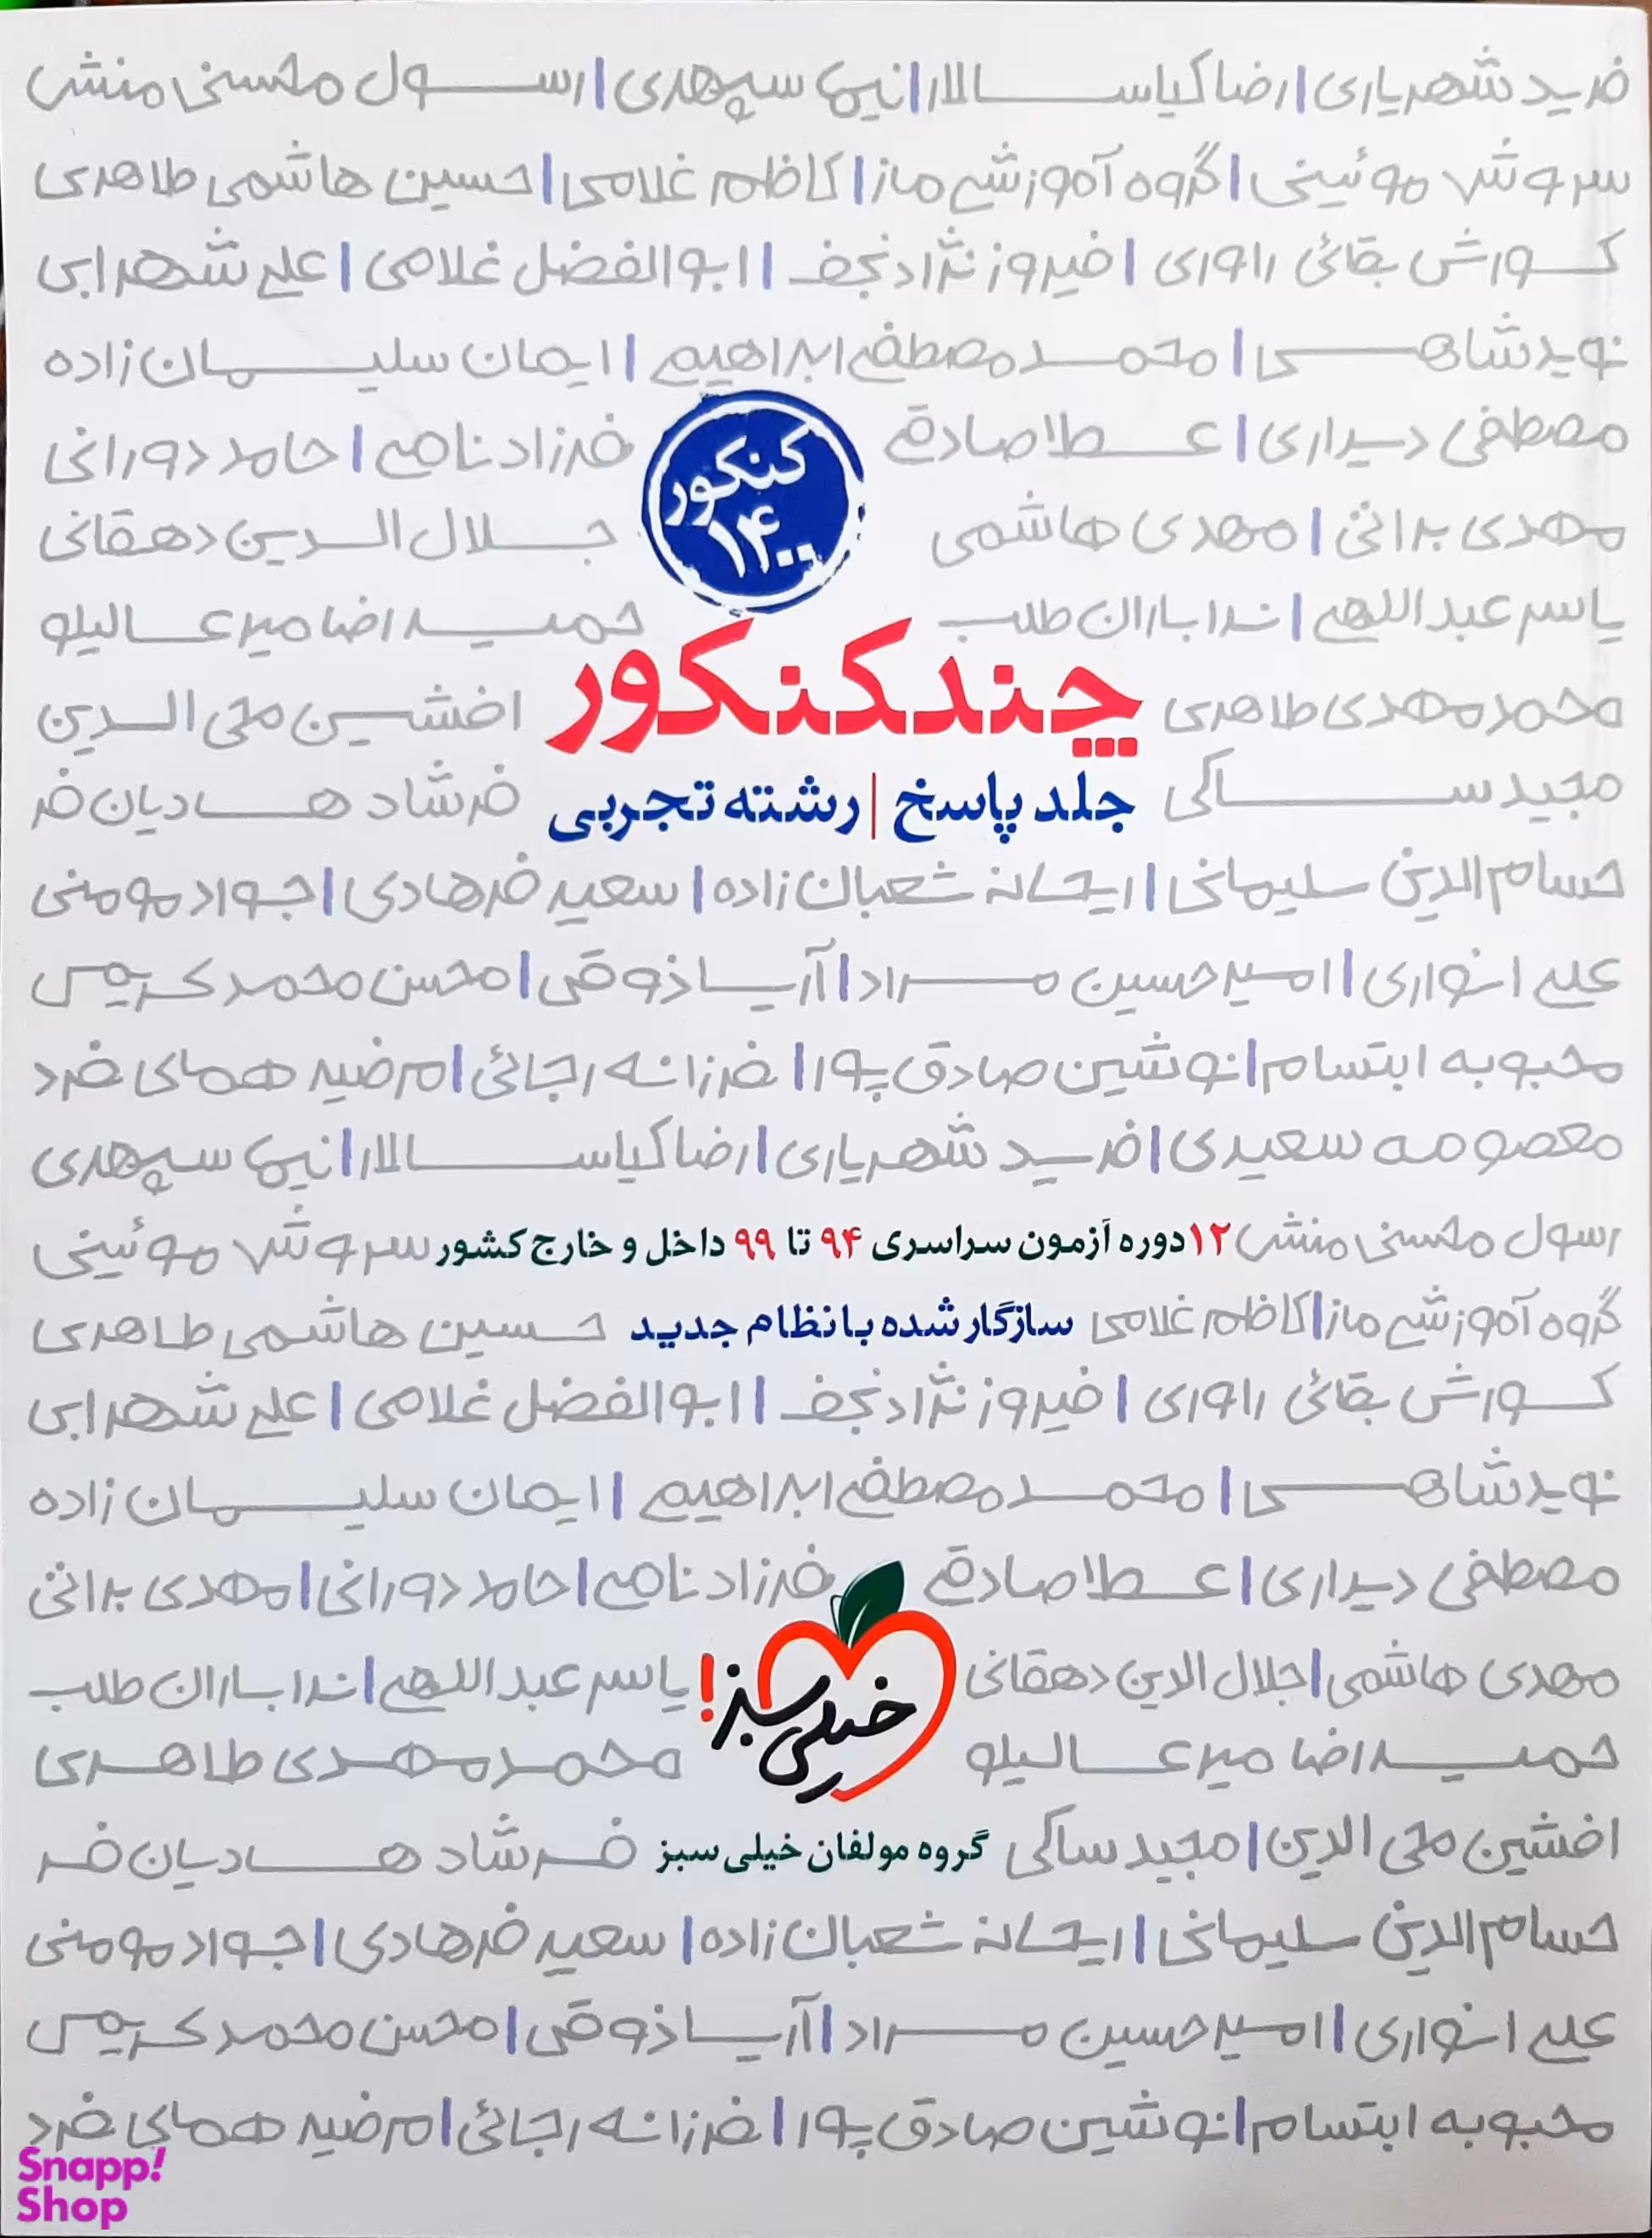 فرید شهریاری | رضا کیاسالار | نیما سپهری | رسول محسنی منش
سروش موئینی | گروه آموزشی ماز | کاظم غلامی | حسین هاشمی طاهری
کورش بقائی راوری | فیروز نژادنجف | ابوالفضل غلامی | علی شهرابی
نوید شاهی | محمد مصطفی ابراهیمی | ایمان سلیمان زاده
مصطفی دیداری | عطا صادقی فرزاد نامی | حامد دورانی
کنکور
۱۴۰۰
مهدی براتی | مهدی هاشمی جلال الدین دهقانی
یاسر عبداللهی | ندا باران طلب حمیدرضا میرعالیلو
چند کنکور
محمدمهدی طاهری افشین محی الدین
جلد پاسخ | رشته تجربی
مجید ساکی فرشاد هادیان فر
حسام الدین سلیمانی | ریحانه شعبان زاده | سعید فرهادی | جواد مومنی
علی انواری | امیرحسین مراد | آریا ذوقی | محسن محمدکریمی
محبوبه ابتسام | نوشین صادق پور | فرزانه رجائی | مرضیه همای فرد
معصومه سعیدی | فرید شهریاری | رضا کیاسالار | نیما سپهری
رسول محسنی منش ۱۲ دوره آزمون سراسری ۹۴ تا ۹۹ داخل و خارج کشور سروش موئینی
گروه آموزشی ماز | کاظم غلامی سازگار شده با نظام جدید حسین هاشمی طاهری
کورش بقائی راوری | فیروز نژادنجف | ابوالفضل غلامی | علی شهرابی
نوید شاهی | محمد مصطفی ابراهیمی | ایمان سلیمان زاده
مصطفی دیداری | عطا صادقی فرزاد نامی | حامد دورانی | مهدی براتی
مهدی هاشمی | جلال الدین دهقانی خیلی سبز! یاسر عبداللهی | ندا باران طلب
حمیدرضا میرعالیلو محمدمهدی طاهری
افشین محی الدین | مجید ساکی گروه مولفان خیلی سبز فرشاد هادیان فر
حسام الدین سلیمانی | ریحانه شعبان زاده | سعید فرهادی | جواد مومنی
علی انواری | امیرحسین مراد | آریا ذوقی | محسن محمدکریمی
محبوبه ابتسام | نوشین صادق پور | فرزانه رجائی | مرضیه همای فرد
Snapp!
Shop